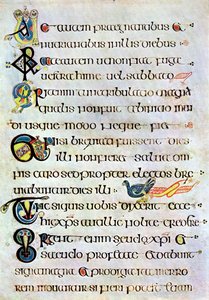 Uae autem praegnantibus &
nutrientibus in illis diebus
Orate autem ut non fiat fuga
uestra hieme uel sabbato
Erit enim tribulatio magna
qualis non fuit ab initio mun
di usque modo neque fi&
Et nisi breuiati fuissent dies
illi non fier& salua om
nis caro sed propter electos bre
uiabuntur dies illi
Tunc si quis uobis dixerit ecce
hic xps aut illic nolite credere
Surgent enim seudo xpi &
seudo prof&ae & dabunt
signa magna & prodigia ita ut in erro
rem inducantur si fieri potest etiam